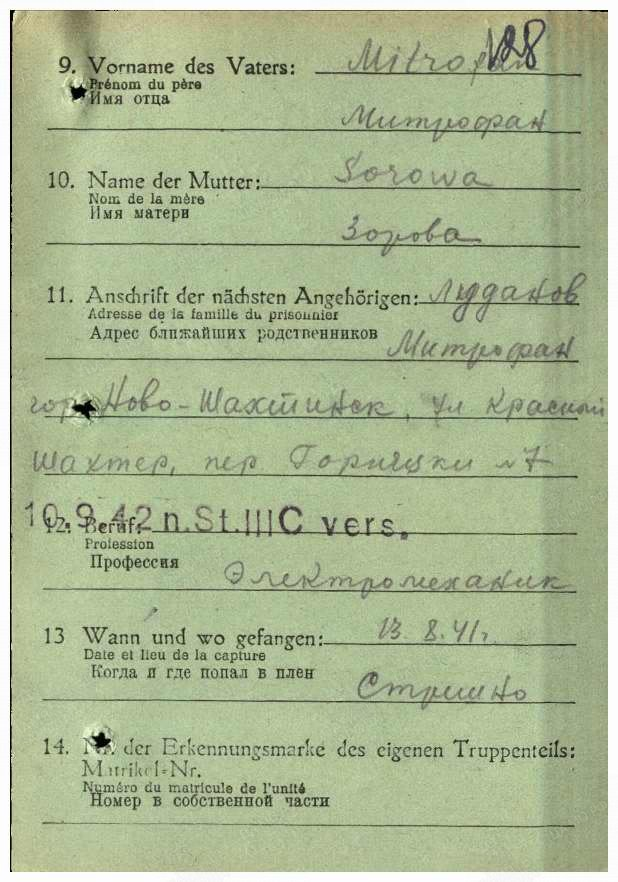 128
9. Vorname des Vaters: Mitrofan
Prénom du père
Имя отца
Митрофан
10. Name der Mutter: Sorowa
Nom de la mère
Имя матери
Зорова
11. Anschrift der nächsten Angehörigen: Лудданов
Adresse de la famille du prisonnier
Адрес ближайших родственников
Митрофан
гор Ново-Шахтинск, ул Красный
Шахтер, пер Горицки №7
10.9.42 n.St.IIIC vers.
12. Beruf:
Profession
Профессия
Электромеханик
13 Wann und wo gefangen: 13.8.41г.
Date et lieu de la capture
Когда и где попал в плен
Стришно
14. Nr. der Erkennungsmarke des eigenen Truppenteils:
Matrikel-Nr.
Numéro du matricule de l'unité
Номер в собственной части